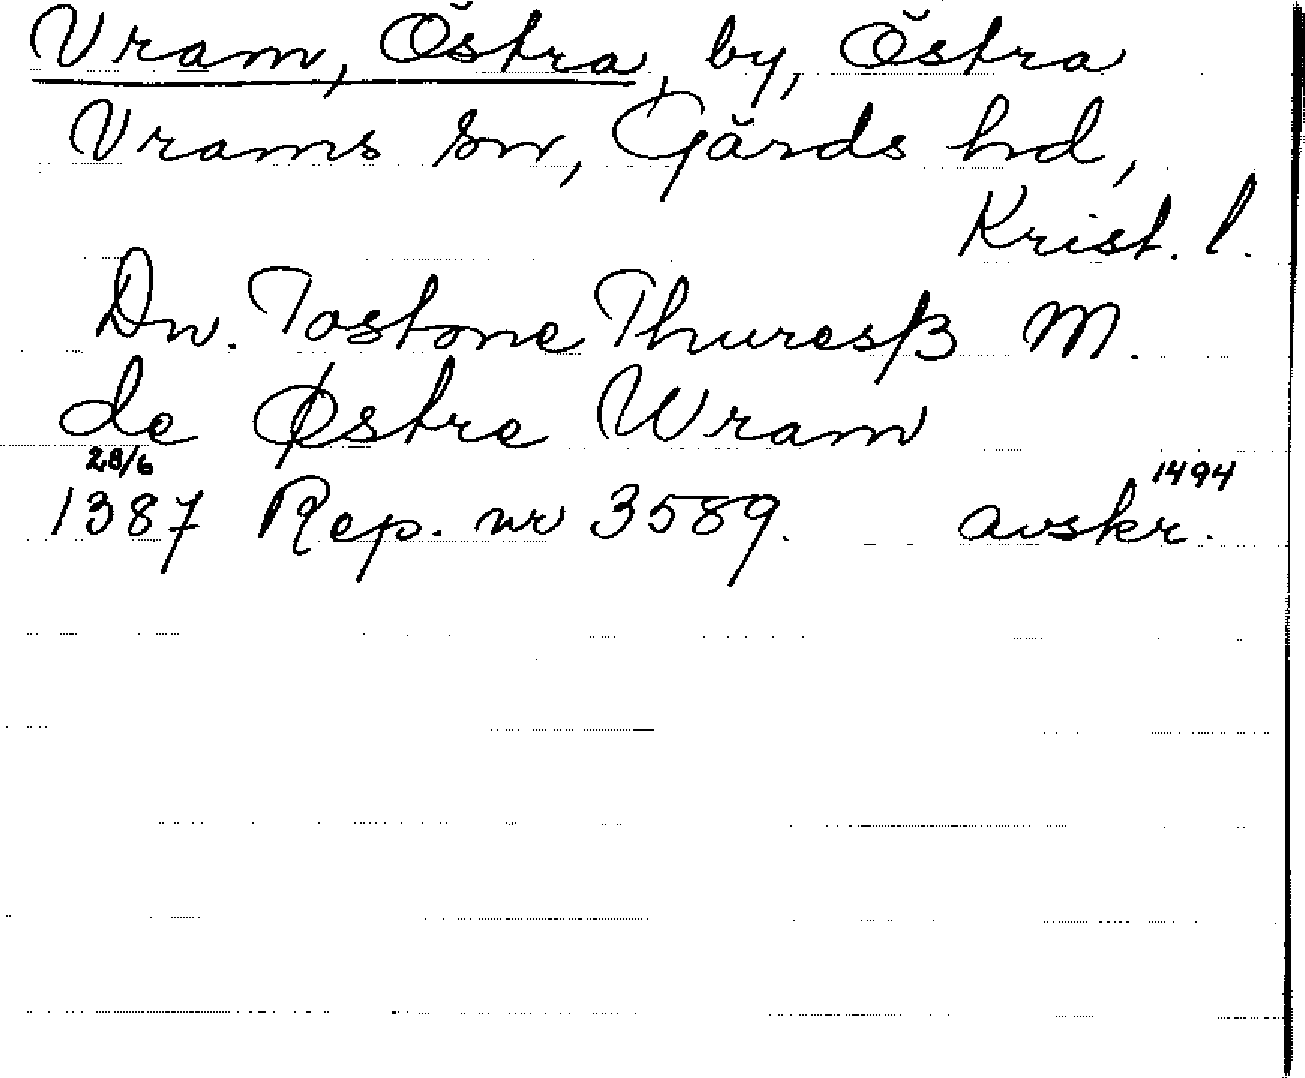 Vram, Östra, by, Östra
Vrams sn, Gärds hd,
Krist. l.
Dn. Tostone Thuresß M.
de Østre Wram
28/6 1494
1387 Rep. nr 3589. avskr.